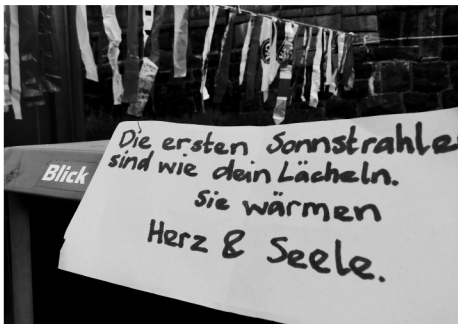 Die ersten Sonnstrahle
sind wie dein Lächeln.
Sie wärmen
Herz & Seele.
Blick